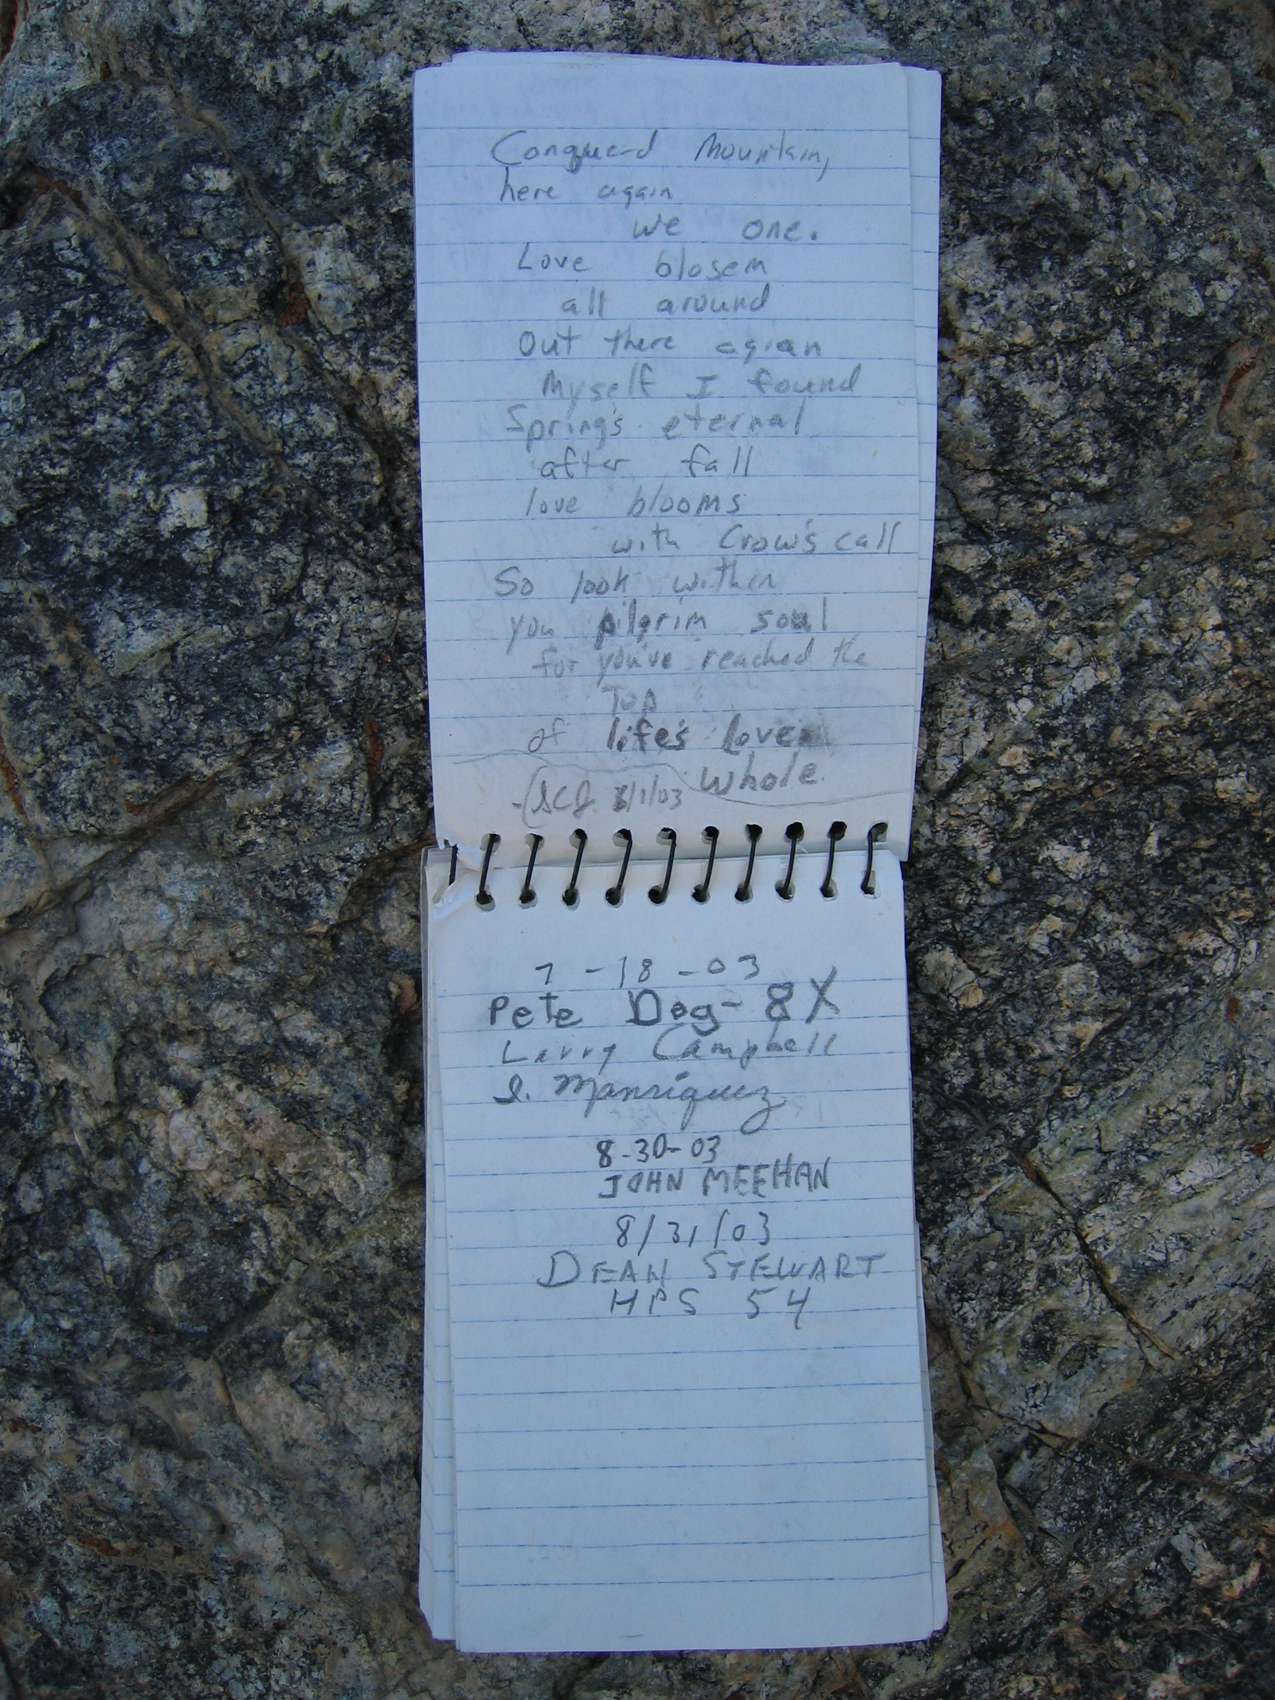 Conquerd Mountain,
here again
we one.
Love blosem
all around
Out there agian
Myself I found
Spring's eternal
after fall
love blooms
with Crow's call
So look within
you pilgrim soul
for you've reached the
Top
of life's love
Whole
7-18-03
Pete Dog - 8X
Larry Campbell
Manriquez
8-30-03
JOHN MEEHAN
8/31/03
DEAN STEWART
HPS 54